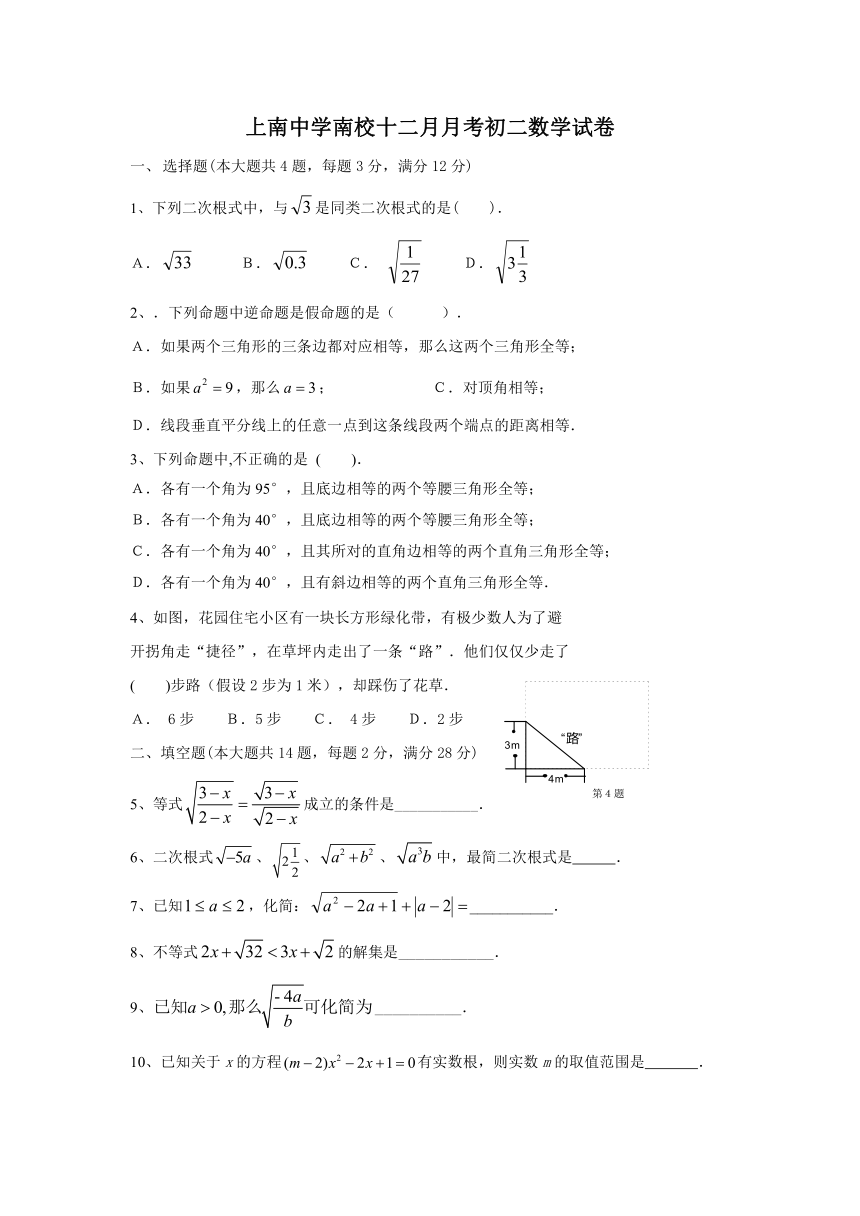 上南中学南校十二月月考初二数学试卷
一、选择题(本大题共4题，每题3分，满分12分)
1、下列二次根式中，与√3是同类二次根式的是(    ).
A. √33    B. √0.3    C. √(1/27)    D. √(3 1/3)
2、. 下列命题中逆命题是假命题的是(    ).
A. 如果两个三角形的三条边都对应相等，那么这两个三角形全等;
B. 如果a²=9，那么a=3;    C. 对顶角相等;
D. 线段垂直平分线上的任意一点到这条线段两个端点的距离相等.
3、下列命题中,不正确的是 (    ).
A. 各有一个角为95°，且底边相等的两个等腰三角形全等;
B. 各有一个角为40°，且底边相等的两个等腰三角形全等;
C. 各有一个角为40°，且其所对的直角边相等的两个直角三角形全等;
D. 各有一个角为40°，且有斜边相等的两个直角三角形全等.
4、如图，花园住宅小区有一块长方形绿化带，有极少数人为了避
开拐角走“捷径”，在草坪内走出了一条“路”. 他们仅仅少走了
(    )步路（假设2步为1米），却踩伤了花草.
A. 6步    B. 5步    C. 4步    D. 2步
3m
“路”
4m
第4题
二、填空题(本大题共14题，每题2分，满分28分)
5、等式√((3−x)/(2−x)) = √(3−x)/√(2−x) 成立的条件是___________.
6、二次根式√(−5a)、√(2 1/2)、√(a²+b²)、√(a³b)中，最简二次根式是_____.
7、已知1≤a≤2，化简：√(a²−2a+1)+|a−2|=___________.
8、不等式2x+√32<3x+√2的解集是____________.
9、已知a>0,那么√(-4a/b)可化简为___________.
10、已知关于x的方程(m−2)x²−2x+1=0有实数根，则实数m的取值范围是_______.